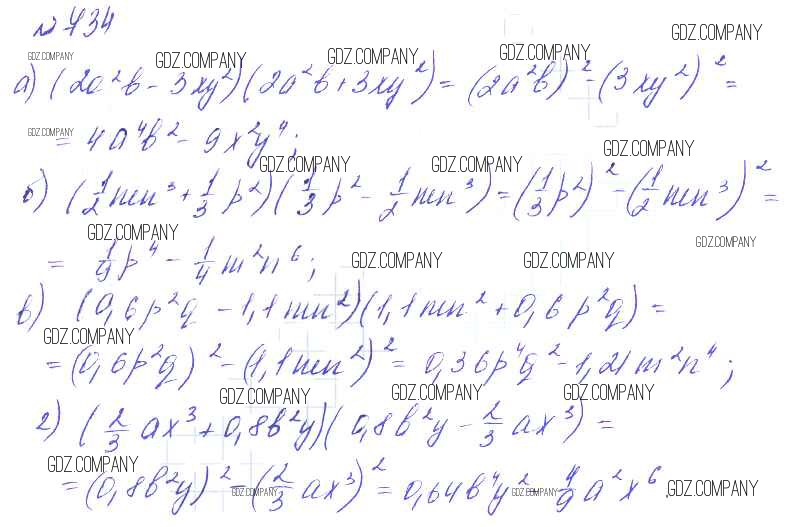 № 734
GDZ.COMPANY GDZ.COMPANY GDZ.COMPANY GDZ.COMPANY GDZ.COMPANY
а) (2a²b - 3xy²)(2a²b + 3xy²) = (2a²b)² - (3xy²)² =
GDZ.COMPANY
= 4a⁴b² - 9x²y⁴;
GDZ.COMPANY GDZ.COMPANY GDZ.COMPANY
б) (1/2 mn³ + 1/3 p²)(1/3 p² - 1/2 mn³) = (1/3 p²)² - (1/2 mn³)² =
GDZ.COMPANY GDZ.COMPANY
= 1/9 p⁴ - 1/4 m²n⁶; GDZ.COMPANY GDZ.COMPANY
в) (0,6p²q - 1,1mn²)(1,1mn² + 0,6p²q) =
GDZ.COMPANY
= (0,6p²q)² - (1,1mn²)² = 0,36p⁴q² - 1,21m²n⁴;
GDZ.COMPANY GDZ.COMPANY GDZ.COMPANY
г) (2/3 ax³ + 0,8b²y)(0,8b²y - 2/3 ax³) =
GDZ.COMPANY
= (0,8b²y)² - (2/3 ax³)² = 0,64b⁴y² - 4/9 a²x⁶.
GDZ.COMPANY GDZ.COMPANY GDZ.COMPANY